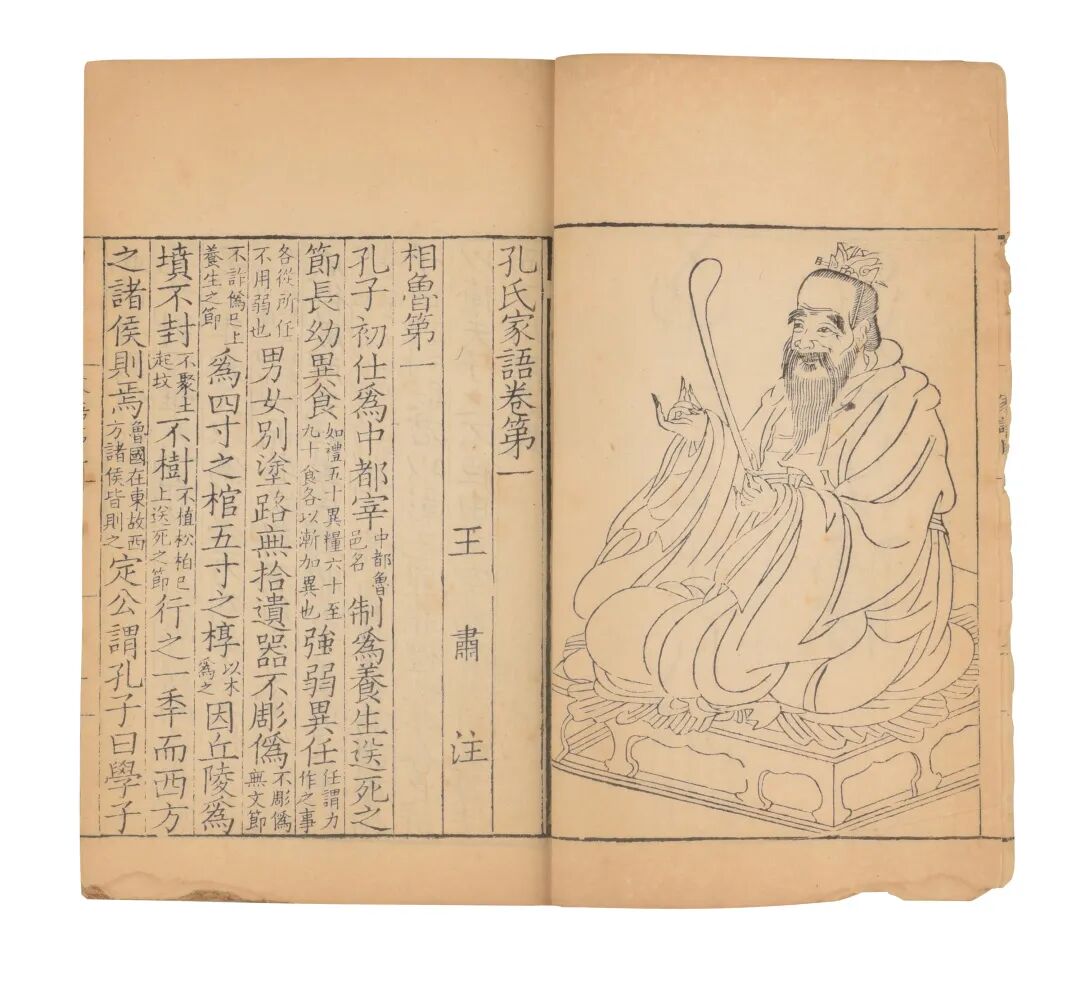 孔氏家語卷第一
王肅注
相魯第一
孔子初仕爲中都宰中都魯邑名制爲養生送死之
節長幼異食如禮五十異糧六十至九十食各以漸加異也強弱異任任謂力作之事
各從所任不用弱也男女別塗路無拾遺器不彫僞不彫僞無文節
不詐僞已上養生之節爲四寸之棺五寸之椁以木爲之因丘陵爲
墳不封不聚土起坟不樹不植松柏已上送死之節行之一季而西方
之諸侯則焉魯國在東故西方諸侯皆則之定公謂孔子曰學子